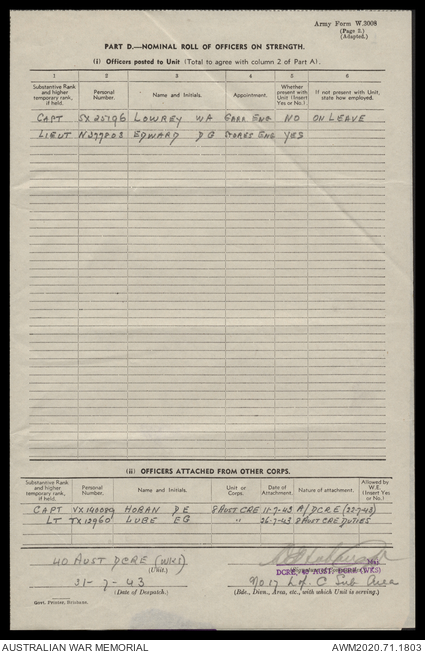 Army Form W.3008
(Page 3.)
(Adapted.)
PART D.—NOMINAL ROLL OF OFFICERS ON STRENGTH.
(i) Officers posted to Unit (Total to agree with column 2 of Part A).
1 2 3 4 5 6
Substantive Rank and higher temporary rank, if held. Personal Number. Name and Initials. Appointment. Whether present with Unit (Insert Yes or No.) If not present with Unit, state how employed.
CAPT SX25796 LOWREY WA ENG NO ON LEAVE
LIEUT EDWARD DG ENG YES
(ii) OFFICERS ATTACHED FROM OTHER CORPS.
Substantive Rank and higher temporary rank, if held. Personal Number. Name and Initials. Unit or Corps. Date of Attachment. Nature of attachment. Allowed by W.E. (Insert Yes or No.)
CAPT VX140089 HOBAN DE 8 AUST CRE 11-7-43 A/DCRE (22-7-43)
LT TX12960 LUBE EG " 26-7-43 8 AUST CRE DUTIES
40 AUST DCRE (WKS)
(Unit.)
DCRE, 40 AUST. DCRE (WKS)
31-7-43
(Date of Despatch.)
No 17 L of C Sub Area
(Bde., Divn., Area, etc., with which Unit is serving.)
Govt. Printer, Brisbane.
AUSTRALIAN WAR MEMORIAL
AWM2020.71.1803